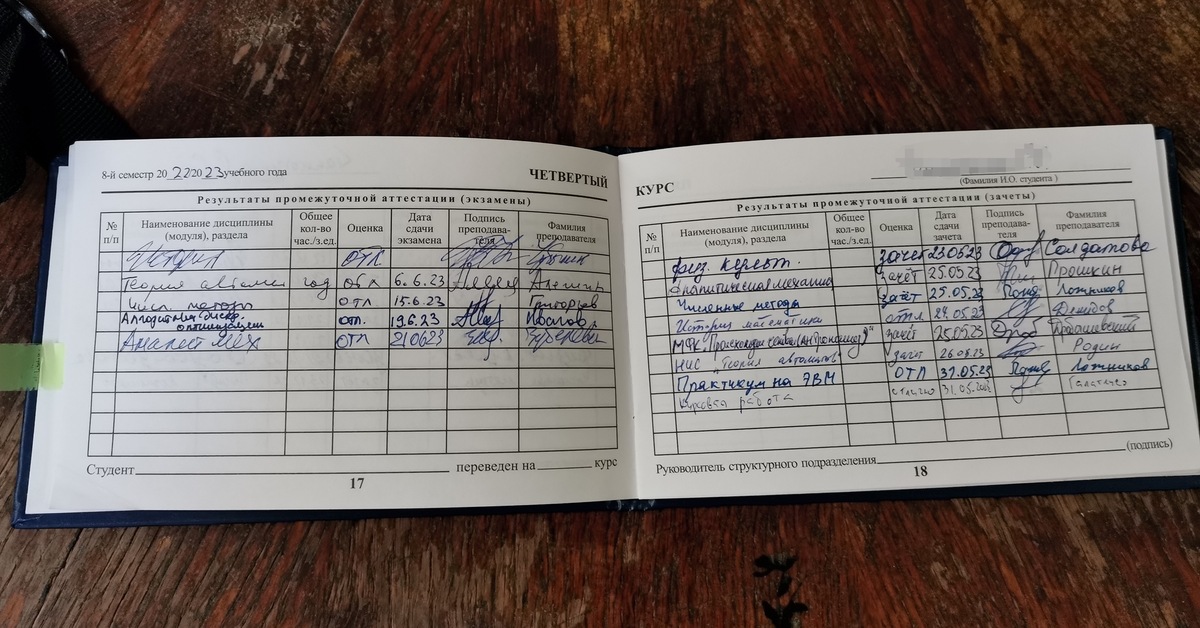 8-й семестр 20 22/20 23 учебного года
ЧЕТВЕРТЫЙ
Результаты промежуточной аттестации (экзамены)
№ п/п Наименование дисциплины (модуля), раздела Общее кол-во час./з.ед. Оценка Дата сдачи экзамена Подпись преподава-теля Фамилия преподавателя
История отл.
Теория автом год отл 6.6.23 Алешин
Числ. методы отл 15.6.23 Григорьев
Алгоритмы дискр. оптимизации отл. 19.6.23 Иванов
Аналит мех отл 210623
Студент переведен на курс
17
КУРС
(Фамилия И.О. студента)
Результаты промежуточной аттестации (зачеты)
№ п/п Наименование дисциплины (модуля), раздела Общее кол-во час./з.ед. Оценка Дата сдачи зачета Подпись преподава-теля Фамилия преподавателя
физ. культ. зачет 230623 Солдатова
Аналитическая механика зачёт 25.05.23 Прошкин
Численные методы зачет 25.05.23 Ложников
История математики отл 24.05.23 Демидов
МФК "Происхождение (астрономия)" зачёт 25.05.23
НИС "Теория автоматов" зачет 26.05.23 Родин
Практикум на ЭВМ ОТЛ 31.05.23 Ложников
Курсовая работа отлично 31.05.2023
Руководитель структурного подразделения (подпись)
18